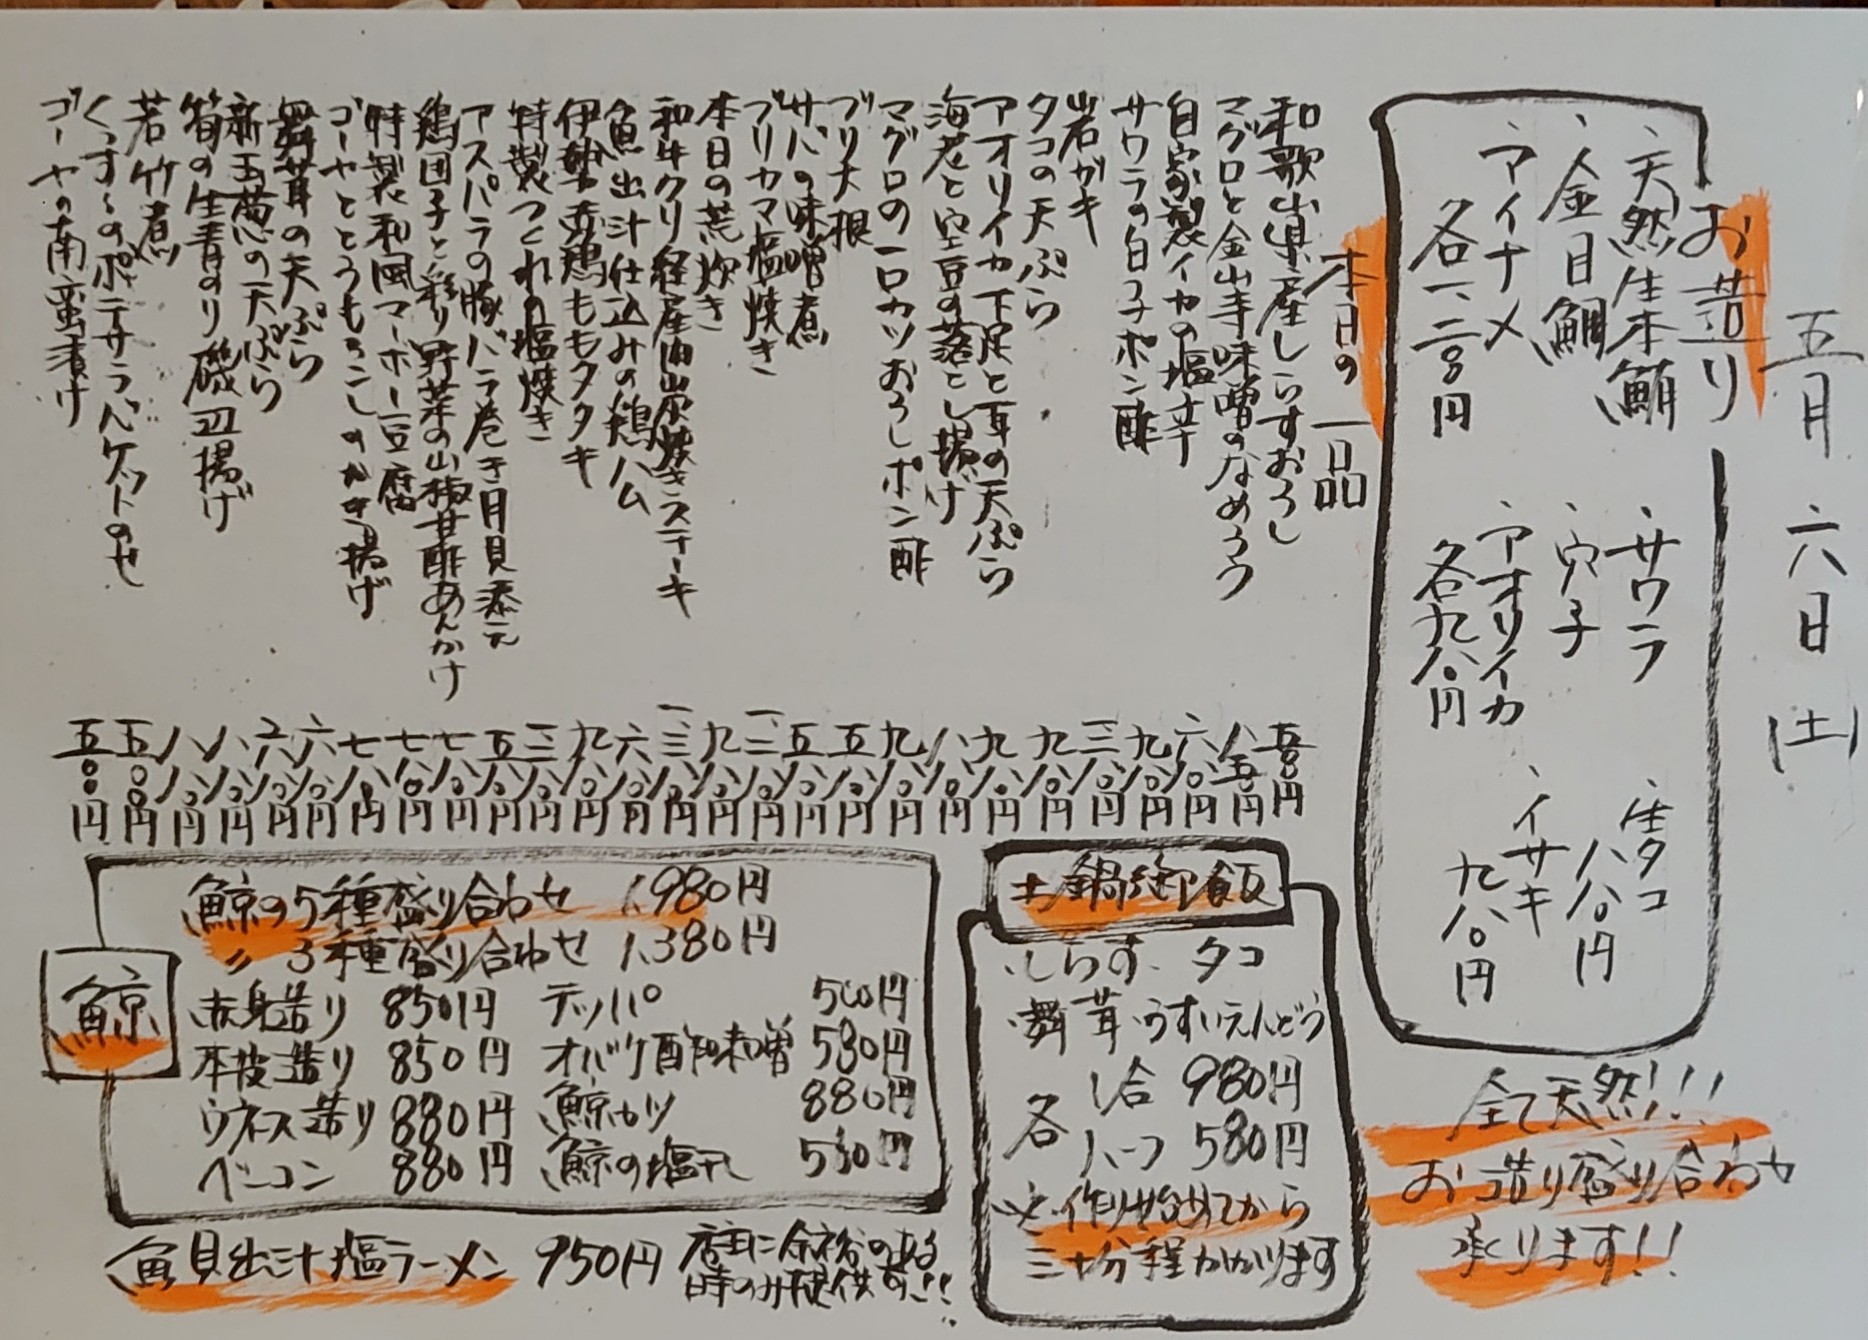 五月 六日 (土)
お造り
、天然生本鮪
、金目鯛
、アイナメ
各一、二〇〇円
、サワラ
、穴子
、アオリイカ
各九八〇円
、生タコ
八八〇円
、イサキ
九八〇円
全て天然!!!
お造り盛り合わせ
承ります!!
本日の一品
和歌山県産しらすおろし 五〇〇円
マグロと金山寺味噌のなめろう 八五〇円
自家製イカの塩辛 六八〇円
サワラの白子ポン酢 九八〇円
岩ガキ
タコの天ぷら 九八〇円
アオリイカ下足と耳の天ぷら 九八〇円
海老と空豆の落とし揚げ 八八〇円
マグロの一口カツおろしポン酢 九八〇円
ブリ大根 五八〇円
サバの味噌煮 五八〇円
ブリカマ塩焼き
本日の荒炊き 九八〇円
和牛クリ経産肉炭焼きステーキ
魚出汁仕込みの鶏ハム 六八〇円
伊勢赤鶏ももタタキ 九八〇円
特製つくねの塩焼き
アスパラの豚バラ巻き月見添え 五八〇円
鶏団子と彩り野菜の山椒甘酢あんかけ 七八〇円
特製和風マーボー豆腐 七八〇円
ゴーヤととうもろこしのかき揚げ 七八〇円
舞茸の天ぷら 六八〇円
新玉葱の天ぷら 六八〇円
筍の生青のり磯辺揚げ 八八〇円
若竹煮 八八〇円
くっすぅのポテサラバケットのせ 五〇〇円
ゴーヤの南蛮漬け 五〇〇円
土鍋御飯
、しらす、タコ
、舞茸、うすいえんどう
各 1合 980円
ハーフ 580円
※作り始めてから
三十分程かかります
鯨
鯨の5種盛り合わせ 1,980円
〃 3種盛り合わせ 1,380円
赤身造り 850円 テッパ 500円
本皮造り 850円 オバケ酢味噌 580円
ウネス造り 880円 鯨カツ 880円
ベーコン 880円 鯨の塩干 580円
魚貝出汁塩ラーメン 950円
店主に余裕のある
時のみ提供す!!